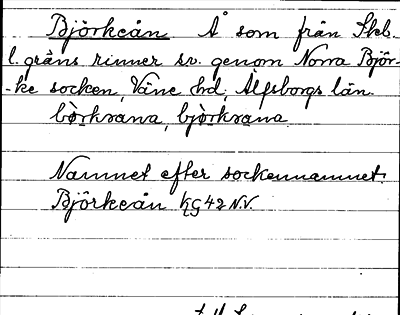 Björkeån Å som från Skb.
l. gräns rinner sv. genom Norra Björ-
-ke socken, Väne hd, Älfsborgs län.
bòrkvana, bjòrkvana
Namnet efter sockennamnet.
Björkeån KG42 N.V.